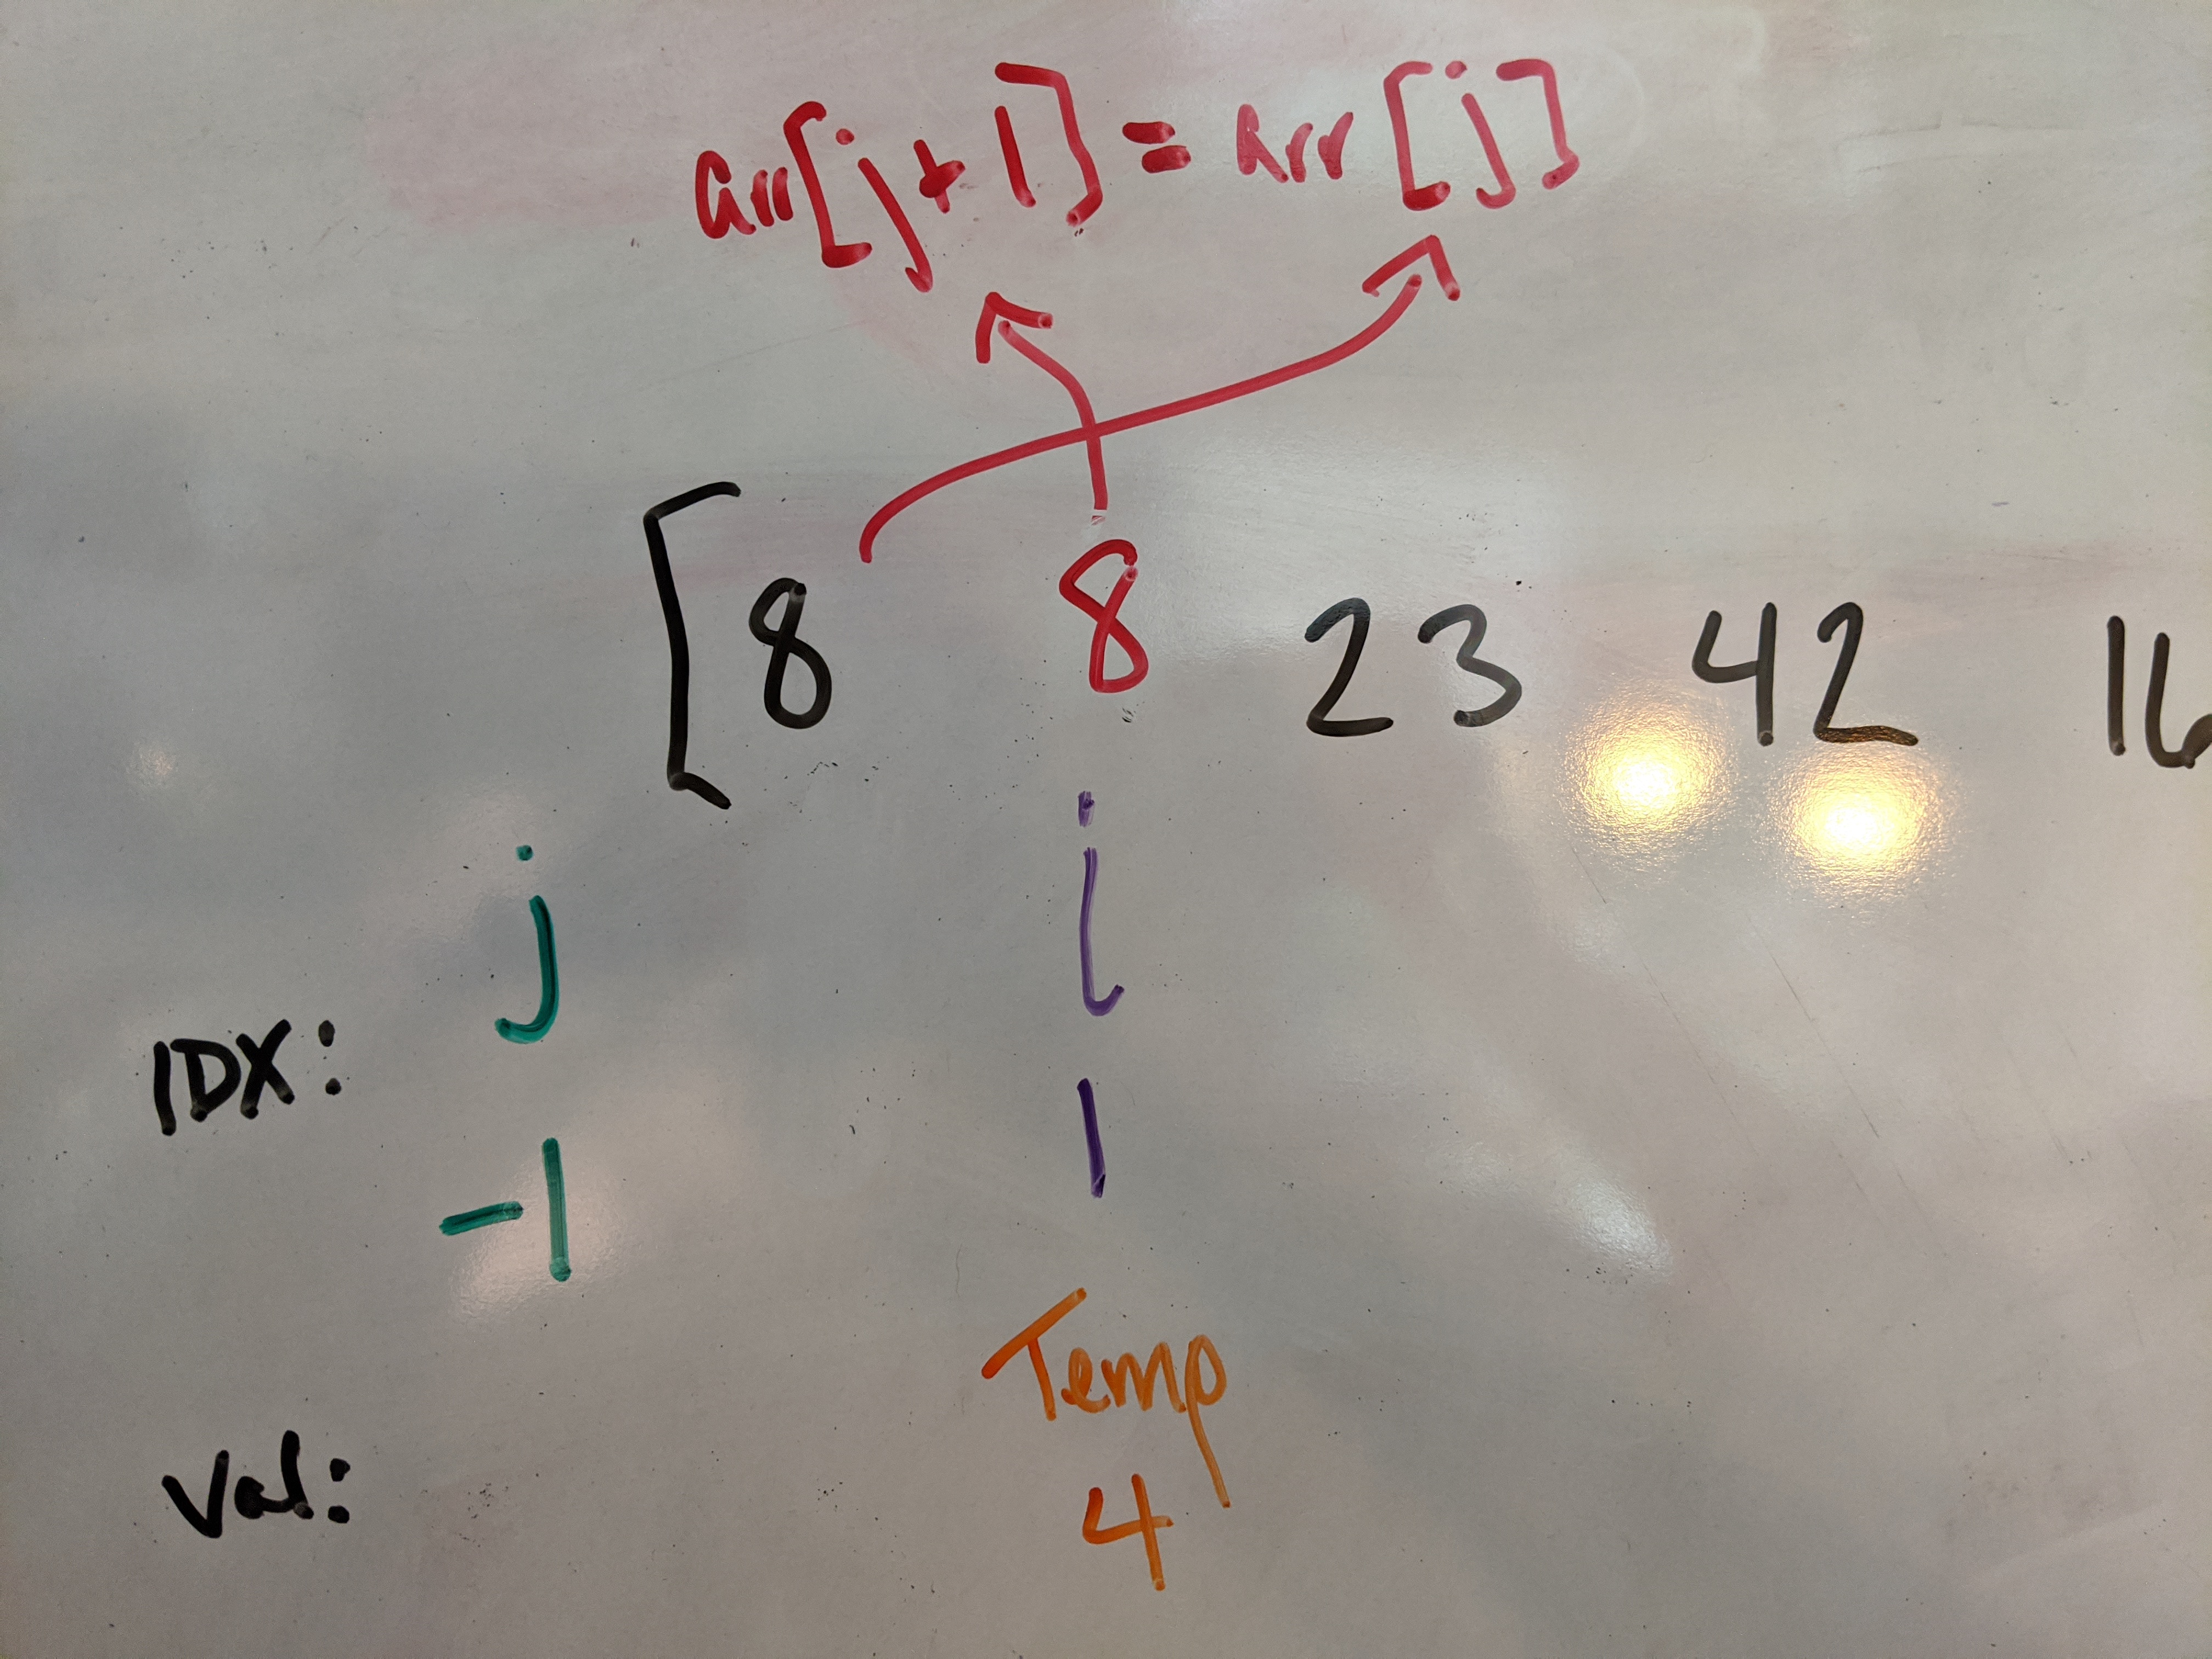 arr[j+1] = arr[j]
[8 8 23 42 16
j i
IDX: -1 1
Temp
Val: 4